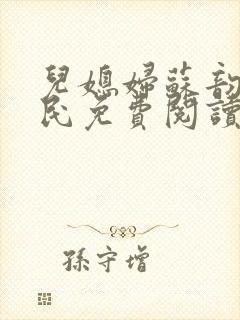 兒媳婦蘇韵
民免費閱讀
孫守增